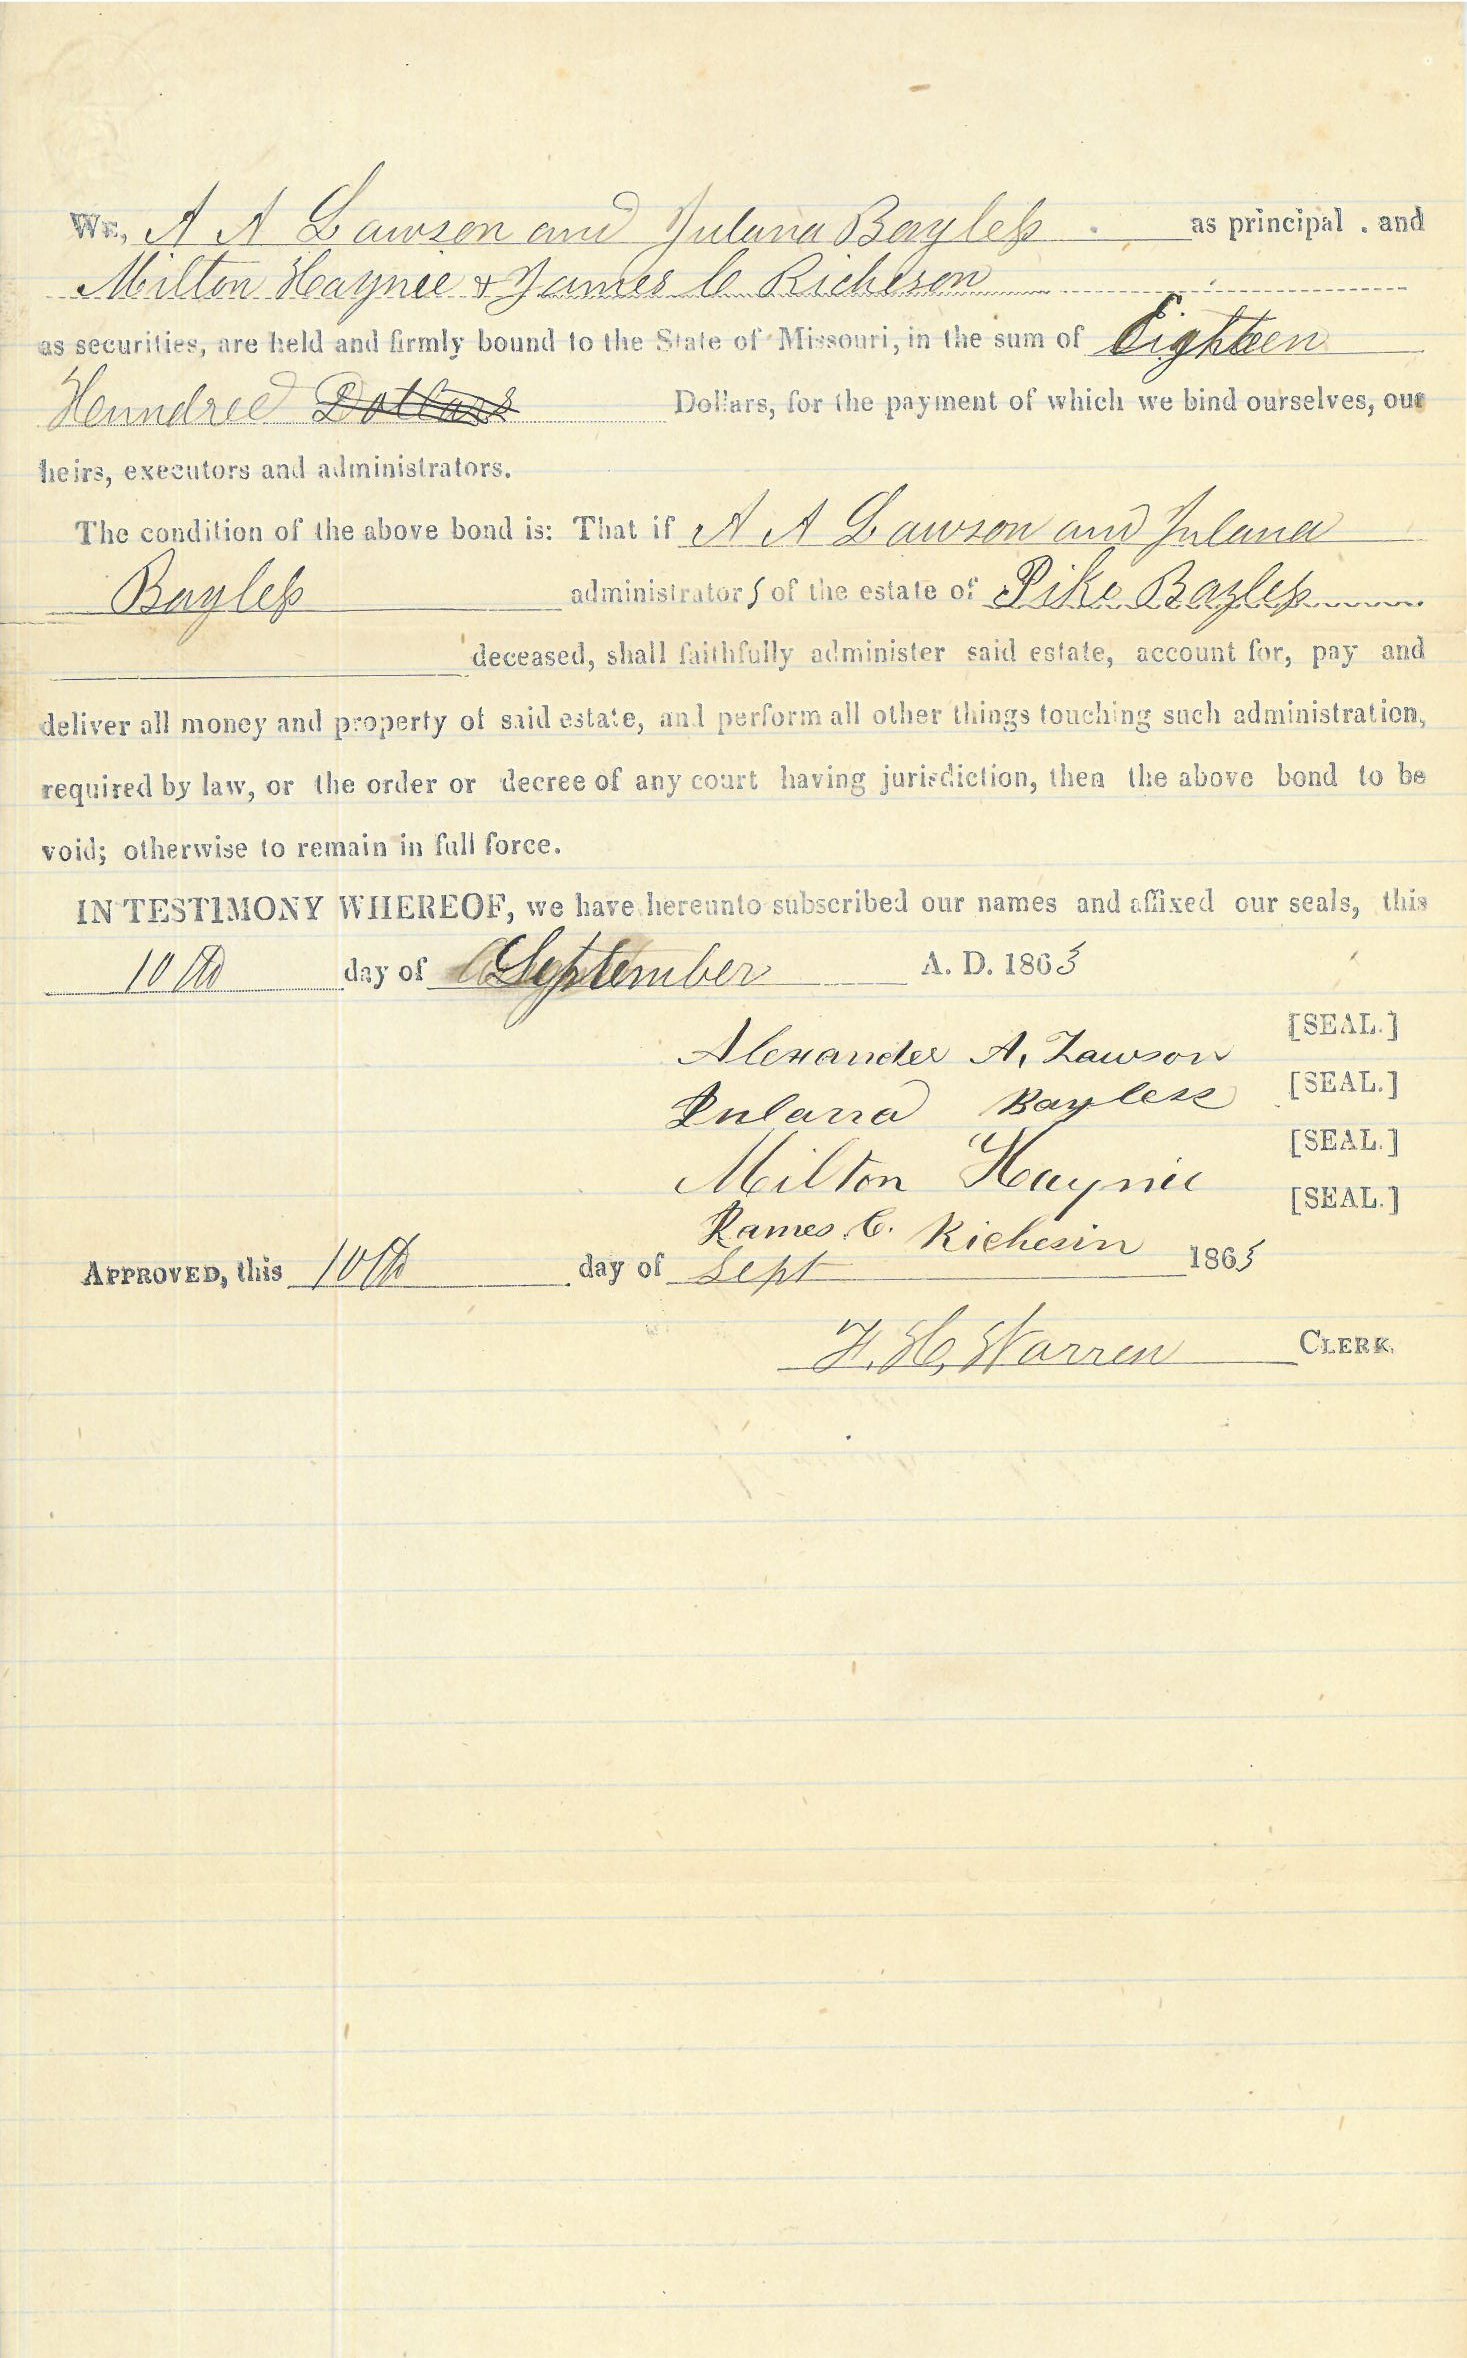 WE, A A Lawson and Julana Bayless as principal . and
Milton Haynie & James C Richeson
as securities, are held and firmly bound to the State of Missouri, in the sum of Eighteen
Hunndred Dollars Dollars, for the payment of which we bind ourselves, our
heirs, executors and administrators.
The condition of the above bond is: That if A A Lawson and Julana
Bayless administrators of the estate of Pike Bayless
deceased, shall faithfully administer said estate, account for, pay and
deliver all money and property of said estate, and perform all other things touching such administration,
required by law, or the order or decree of any court having jurisdiction, then the above bond to be
void; otherwise to remain in full force.
IN TESTIMONY WHEREOF, we have hereunto subscribed our names and affixed our seals, this
10th day of September A. D. 1863
Alexander A. Lawson [SEAL.]
Julana Bayless [SEAL.]
Milton Haynie [SEAL.]
James C. Richesin [SEAL.]
APPROVED, this 10th day of Sept 1863
F. H. Warren CLERK.